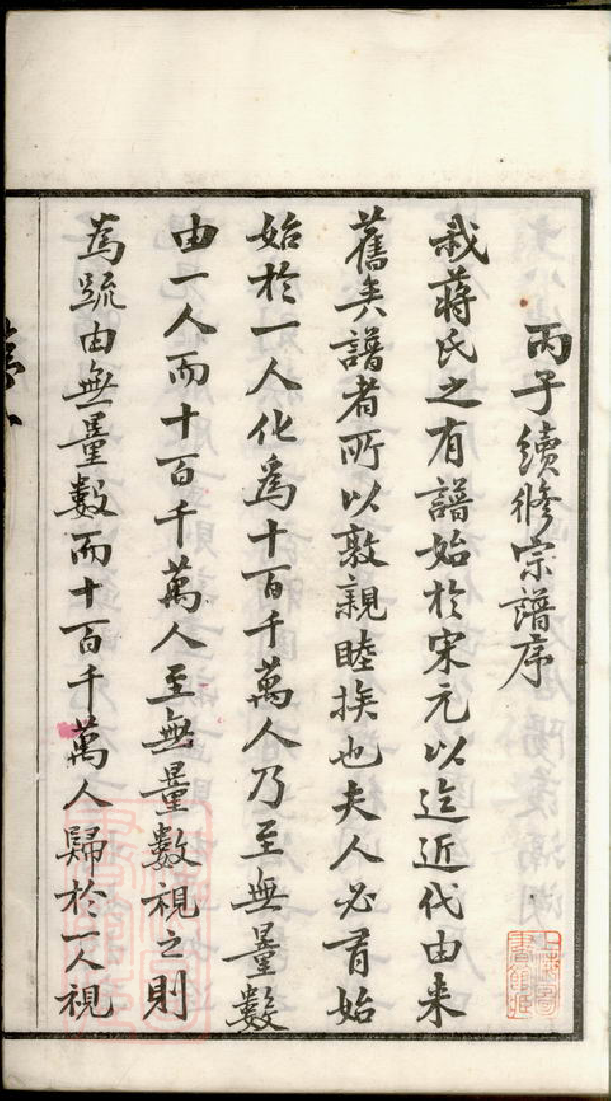 丙子續修宗譜序
我蔣氏之有譜始於宋元以迄近代由来
舊矣譜者所以敦親睦族也夫人必有始
始於一人化爲十百千萬人乃至無量數
由一人而十百千萬人至無量數視之則
為疏由無量數而十百千萬人歸於一人視
上海圖書館藏